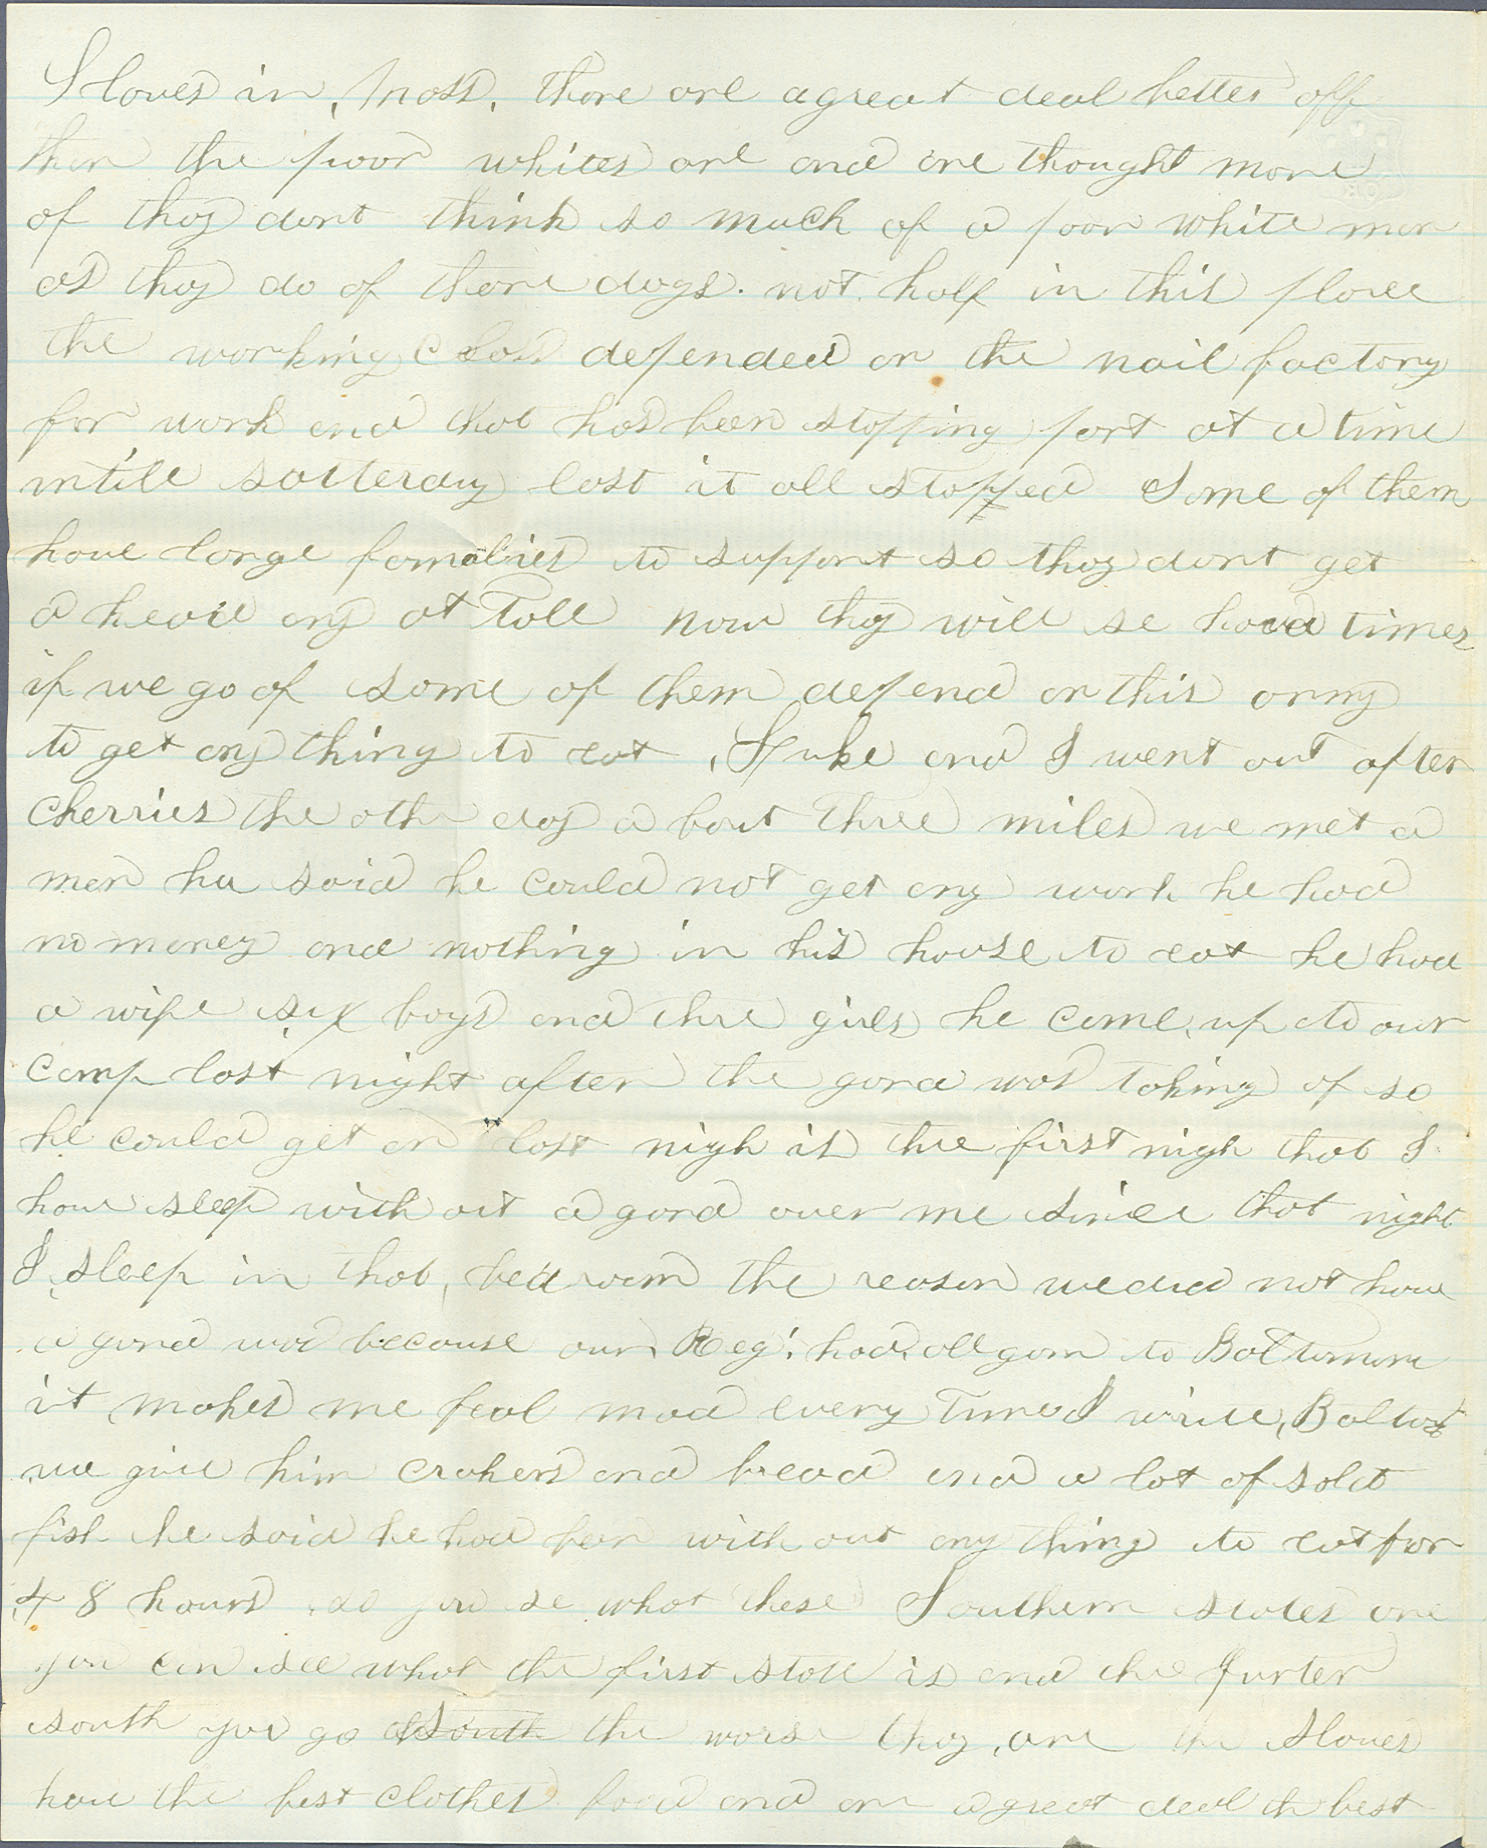 Slaves in, Mass, thare are agreat deal better off
than the poor whites are and are thought more
of thay dont think so much of a poor white man
as thay do of thare dogs. not half in this place
the working class depended on the nail factory
for work and that has been stopping part at a time
intill satterday last it all stopped Some of them
have large families to support so thay dont get
a head any at Tall now thay will se hard times
if we go of some of them depend on this army
to get any thing to eat, Fluke and I went out after
cherries the oth day a bout three miles we met a
man he said he could not get any work he had
no money and nothing in his house to eat he had
a wife six boys and thre girls he came up to our
camp last night after the gard was taking of so
he could get on last nigh is the first nigh that I
have sleep with out a gard over me since that night
I sleep in that, bedroom the reason we did not have
a gard was because our Reg! had all gorn to Baltimore
it makes me feal mad every Time I write, Baltos
we give him crakers and bread and a lot of salt
fish he said he had ben with out any thing to eat for
48 hours so you se what these Southern states are
you can see what the first state is and the furter
south you go south the worse thay are the Slaves
have the best clothes food and are agreat deal the best